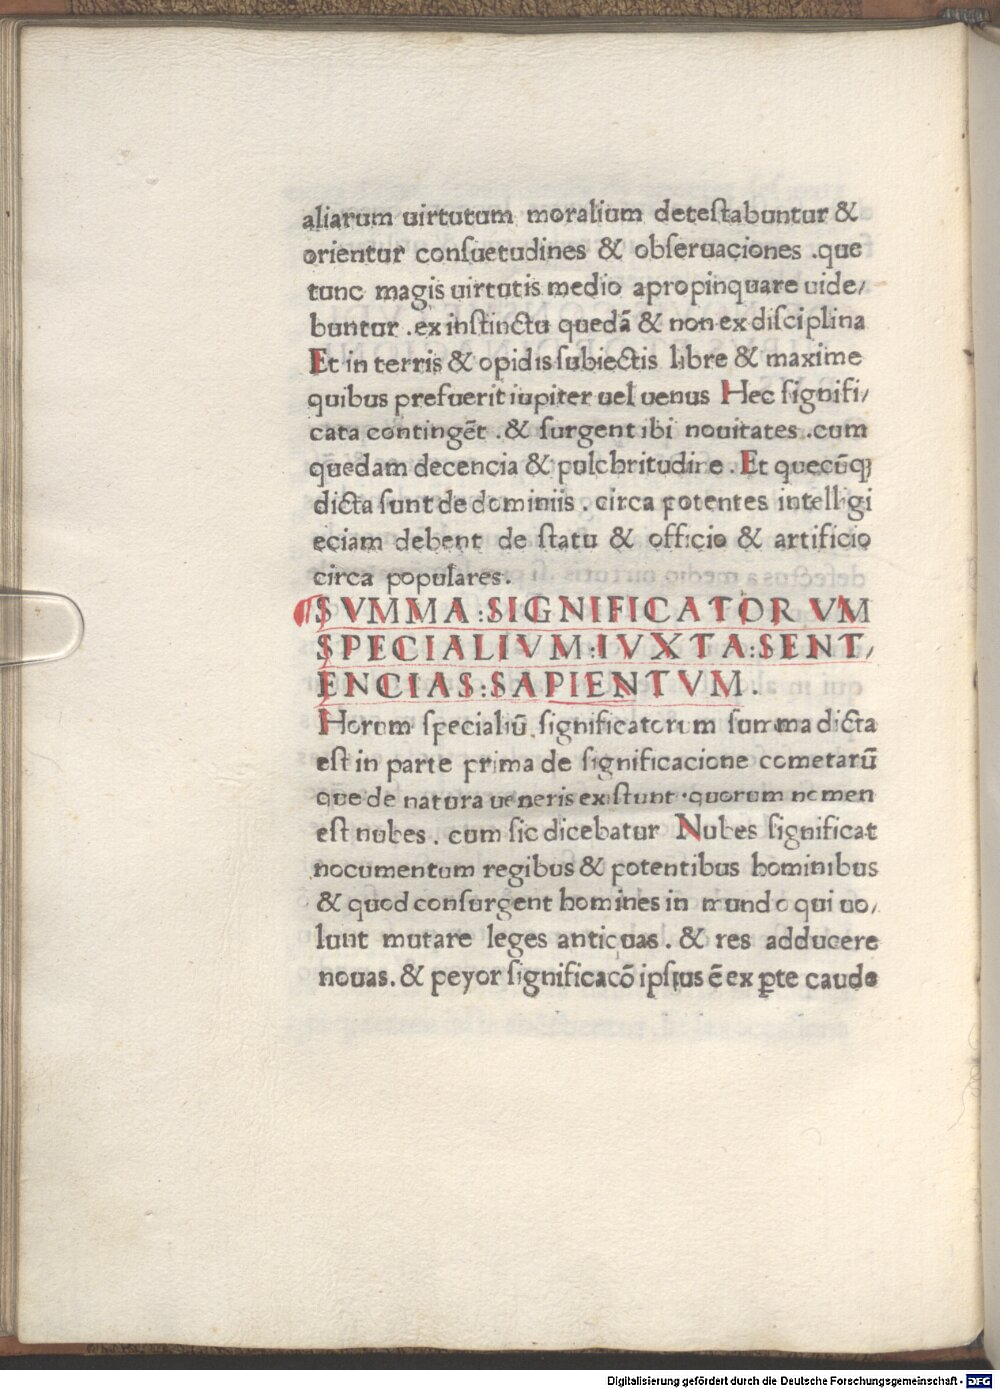 aliarum uirtutum moralium detestabuntur &
orientur consuetudines & obseruaciones .que
tunc magis uirtutis medio apropinquare uide/
buntur .ex instinctu quedã & non ex disciplina
Et in terris & opidis subiectis libre & maxime
quibus prefuerit iupiter uel uenus Hec signifi/
cata contingẽt .& surgent ibi nouitates .cum
quedam decencia & pulchritudine . Et quecũqꝫ
dicta sunt de dominiis . circa potentes intelligi
eciam debent de statu & officio & artificio
circa populares.
¶SVMMA:SIGNIFICATORVM
SPECIALIVM:IVXTA:SENT,
ENCIAS:SAPIENTVM.
Horum specialiũ significatorum summa dicta
est in parte prima de significacione cometarũ
que de natura ueneris existunt .quorum nomen
est nubes . cum sic dicebatur Nubes significat
nocumentum regibus & potentibus hominibus
& quod consurgent homines in mundo qui uo/
lunt mutare leges antiquas . & res adducere
nouas. & peyor significacõ ipsius ẽ ex ꝑte caude
Digitalisierung gefördert durch die Deutsche Forschungsgemeinschaft - DFG